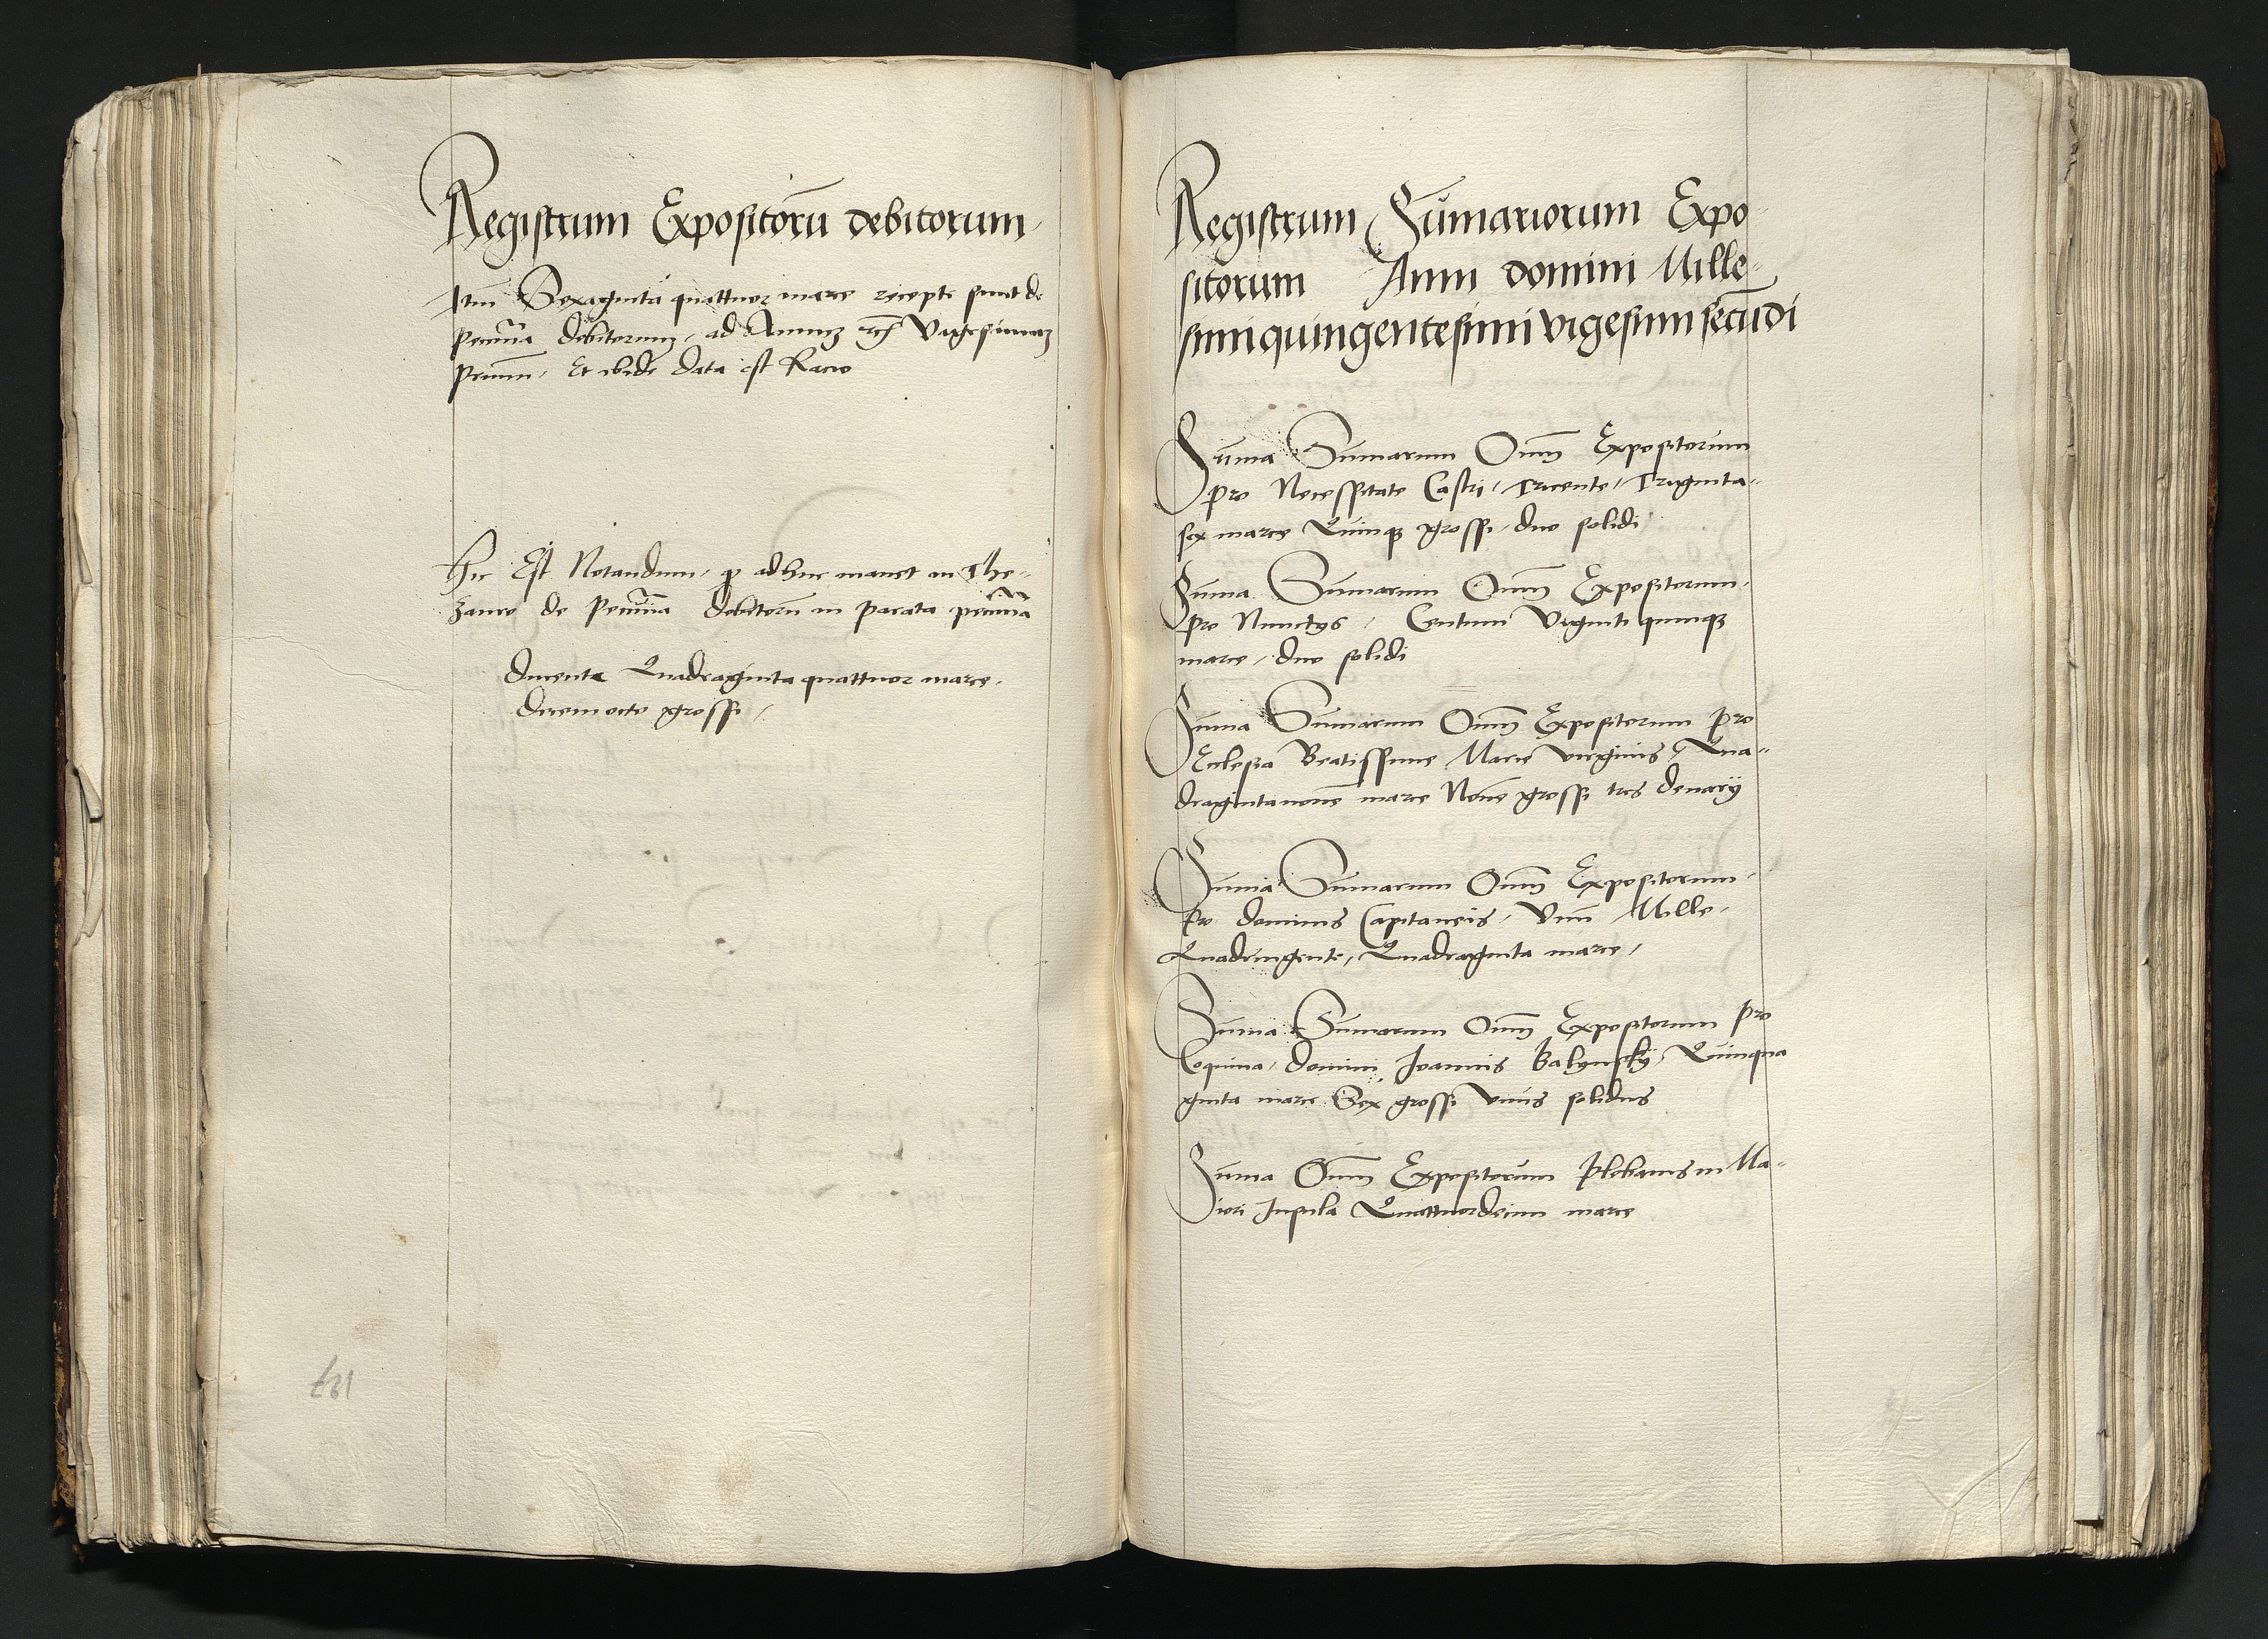 Registrum Expositorū debitorum
Itm Sexaginta quattuor marce recepte sunt de
Pecunia debitorum, ad Annum Vigesimum
Primum, Et ibidē data est Racio
Hic Est Notandum, adhuc manet in The-
zauro de Pecunia debitorū in parata pecunia
ducente Quadraginta quattuor marce,
decemocto grossi,
137
Registrum Sūmariorum Expo
sitorum Anni domini Mille-
simi quingentesimi vigesimi secūdi
Suma Sumarum Oīm Expositorum
pro Necessitate Castri, Tricente, Triginta-
sex marce Quinqȝ grossi, duo solidi
Suma Sumarum Oīm Expositorum,
pro Nunctys, Centum Viginti quinqȝ
marce, duo solidi
Suma Sumarum Oīm Expositorum pro
Ecclesia Beatissime Marie virginis, Qua-
dragintanovē marce Novē grossi tres denarij
Suma Sumarum Oīm Expositorum,
Pro dominis Capitaneis, Vnū Mille,
Quadringente, Quadraginta marce,
Suma Sumarum Oīm Expositorum pro
Coquina, domini Joannis Balynskij, Quinqua
ginta marce Sex grossi Vnus solidus
Suma Oīm Expositorum Plebanis in Ma-
iori Insula Quattuordecim marce